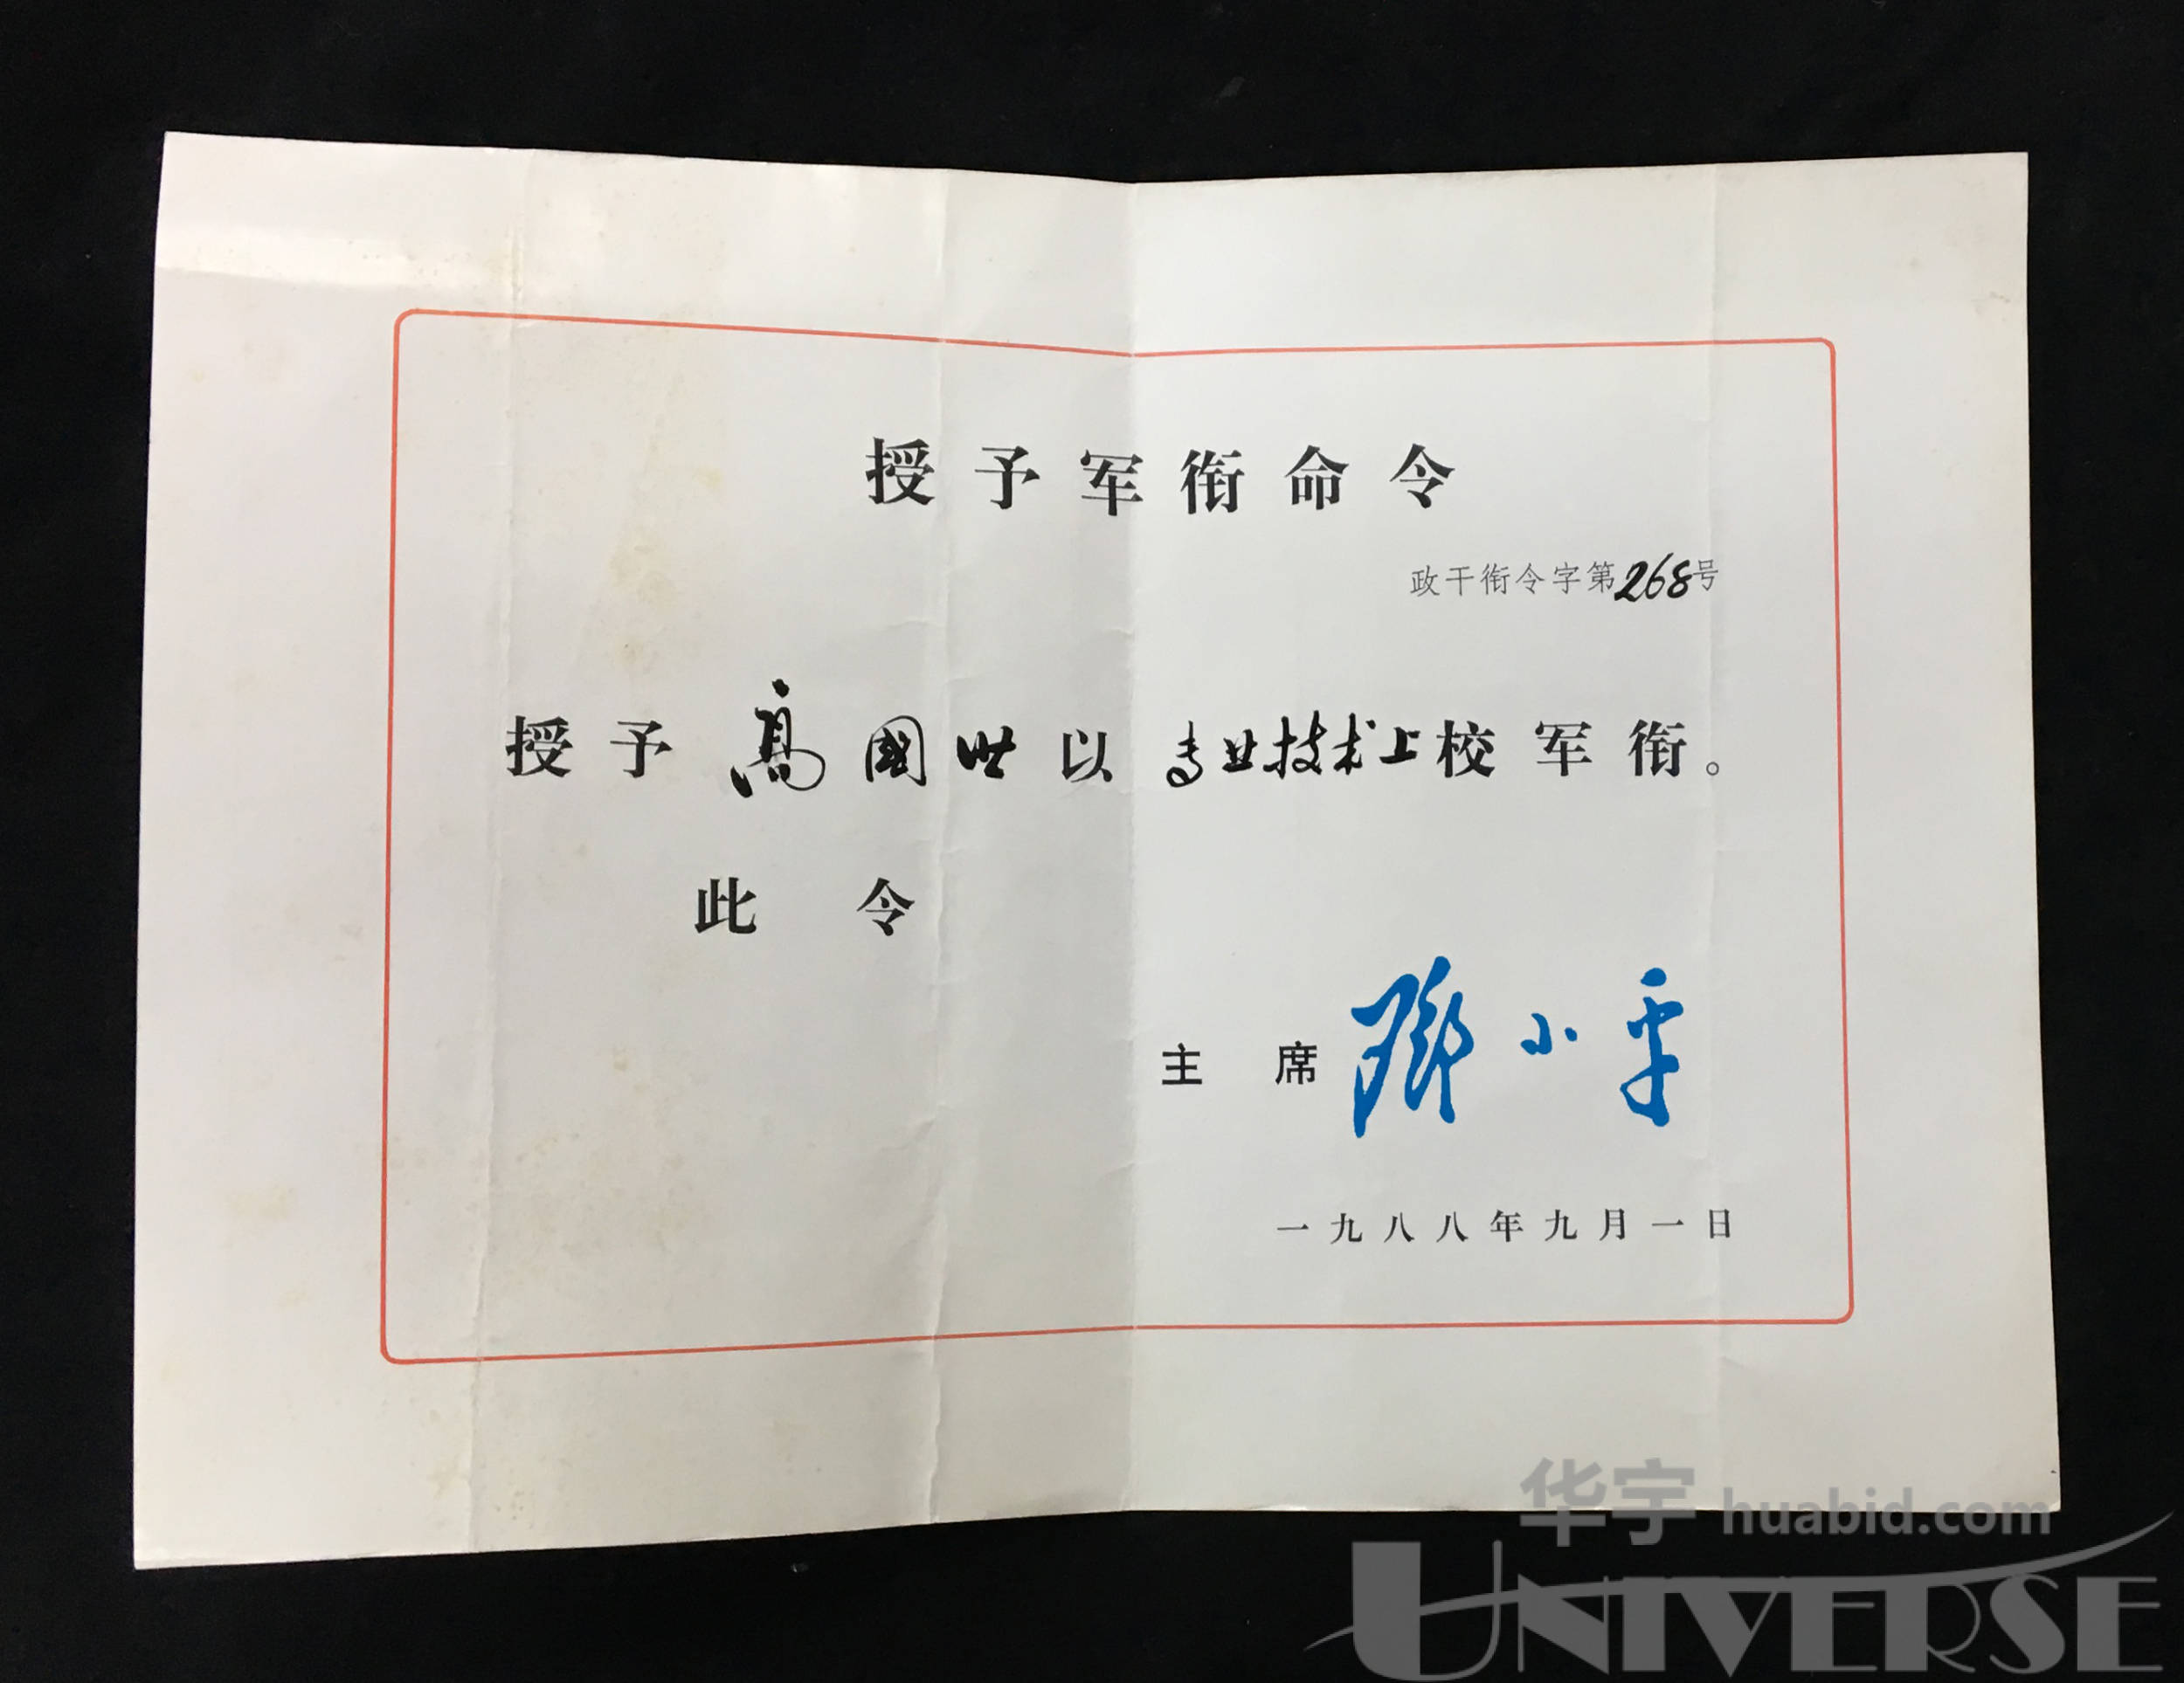 授予军衔命令
政干衔令字第268号
授予高國世以专业技术上校军衔。
此令
主席 邓小平
一九八八年九月一日
华宇 huabid.com
UNIVERSE